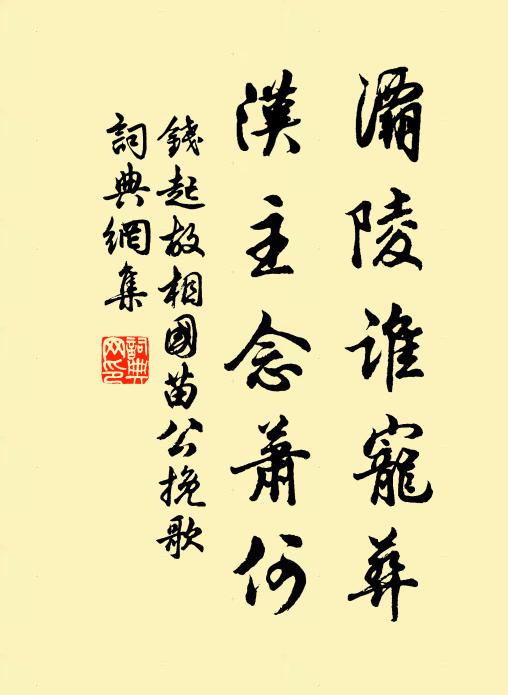 灞陵誰寵葬
漢主念蕭何
錢起故相國苗公挽歌
詞典網集
詞典网印